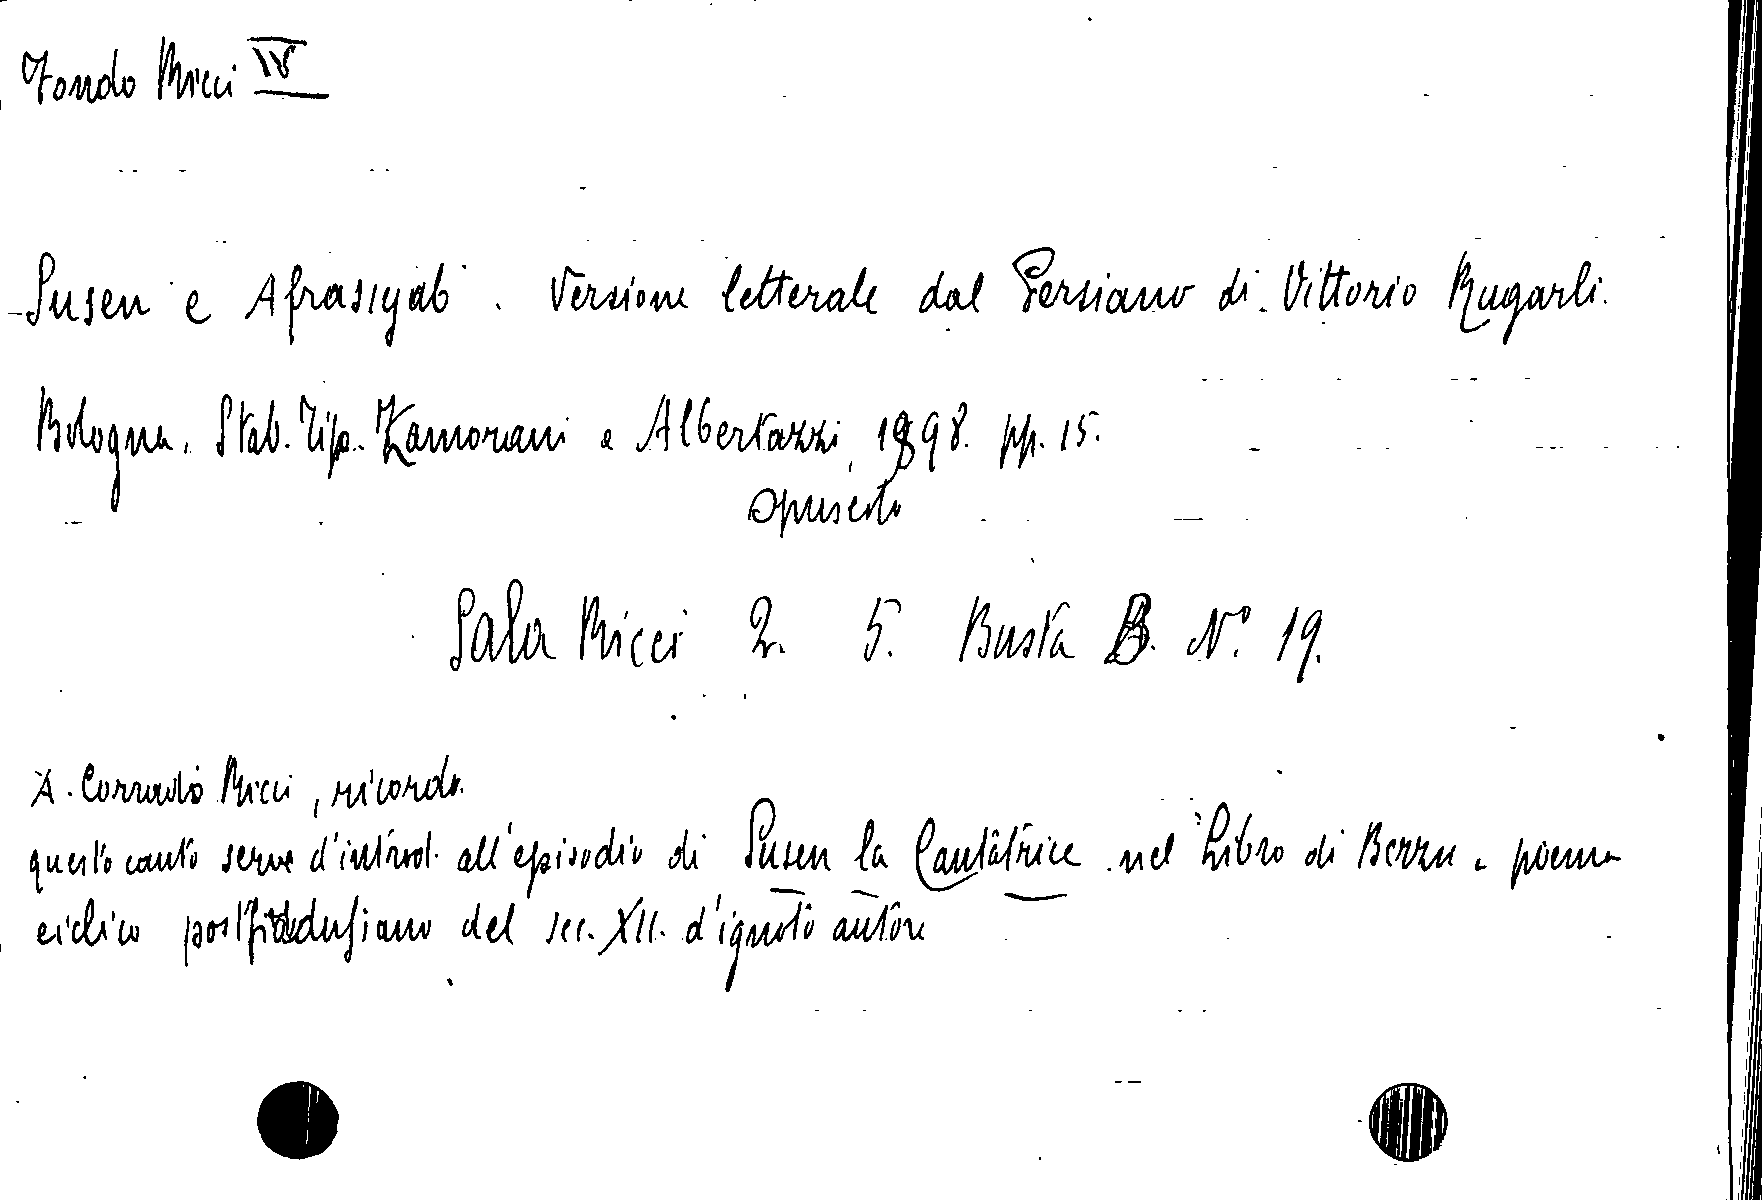 Fondo Ricci IV
Susen e Afrasyab. Versione letterale dal Persiano di Vittorio Rugarli.
Bologna. Stab. Tip. Zamorani e Albertazzi, 1898. pp. 15.
opuscolo
Sala Ricci 2. 5. Busta B. N.° 19.
A. Corrado Ricci, ricordo.
questo canto serve d'introd. all'episodio di Susen la Cantatrice nel Libro di Berzu, poema
ciclico postfirdusiano del sec. XII. d'ignoto autore